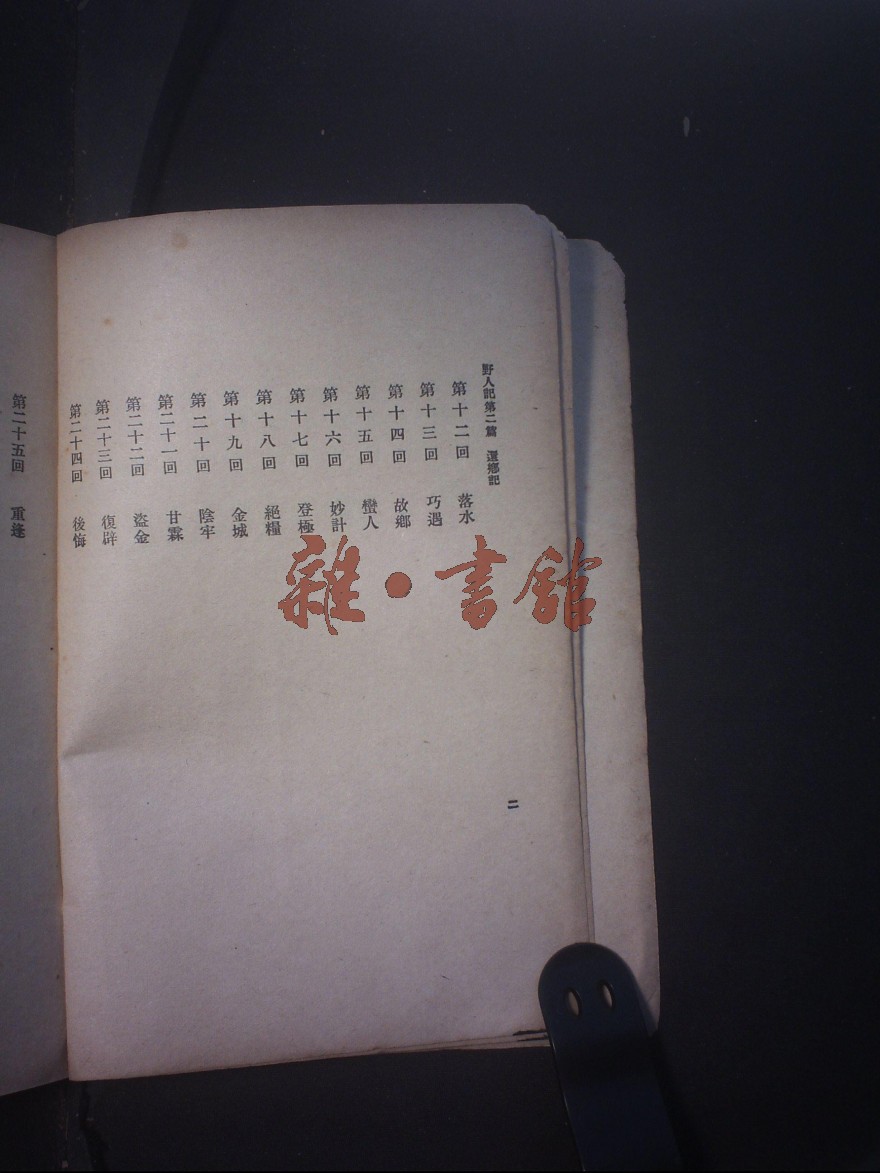 野人記第二篇　還鄉記
第十二回　落水
第十三回　巧遇
第十四回　故鄉
第十五回　蠻人
第十六回　妙計
第十七回　登極
第十八回　絕糧
第十九回　金城
第二十回　陰牢
第二十一回　甘霖
第二十二回　盜金
第二十三回　復辟
第二十四回　後悔
二
第二十五回　重逢
雜·書館